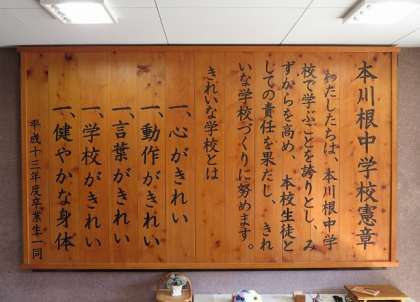 本川根中学校憲章
わたしたちは、本川根中学
校で学ぶことを誇りとし、み
ずからを高め、本校生徒と
しての責任を果だし、きれ
いな学校づくりに努めます。
きれいな学校とは
一、心がきれい
一、動作がきれい
一、言葉がきれい
一、学校がきれい
一、健やかな身体
平成十三年度卒業生一同